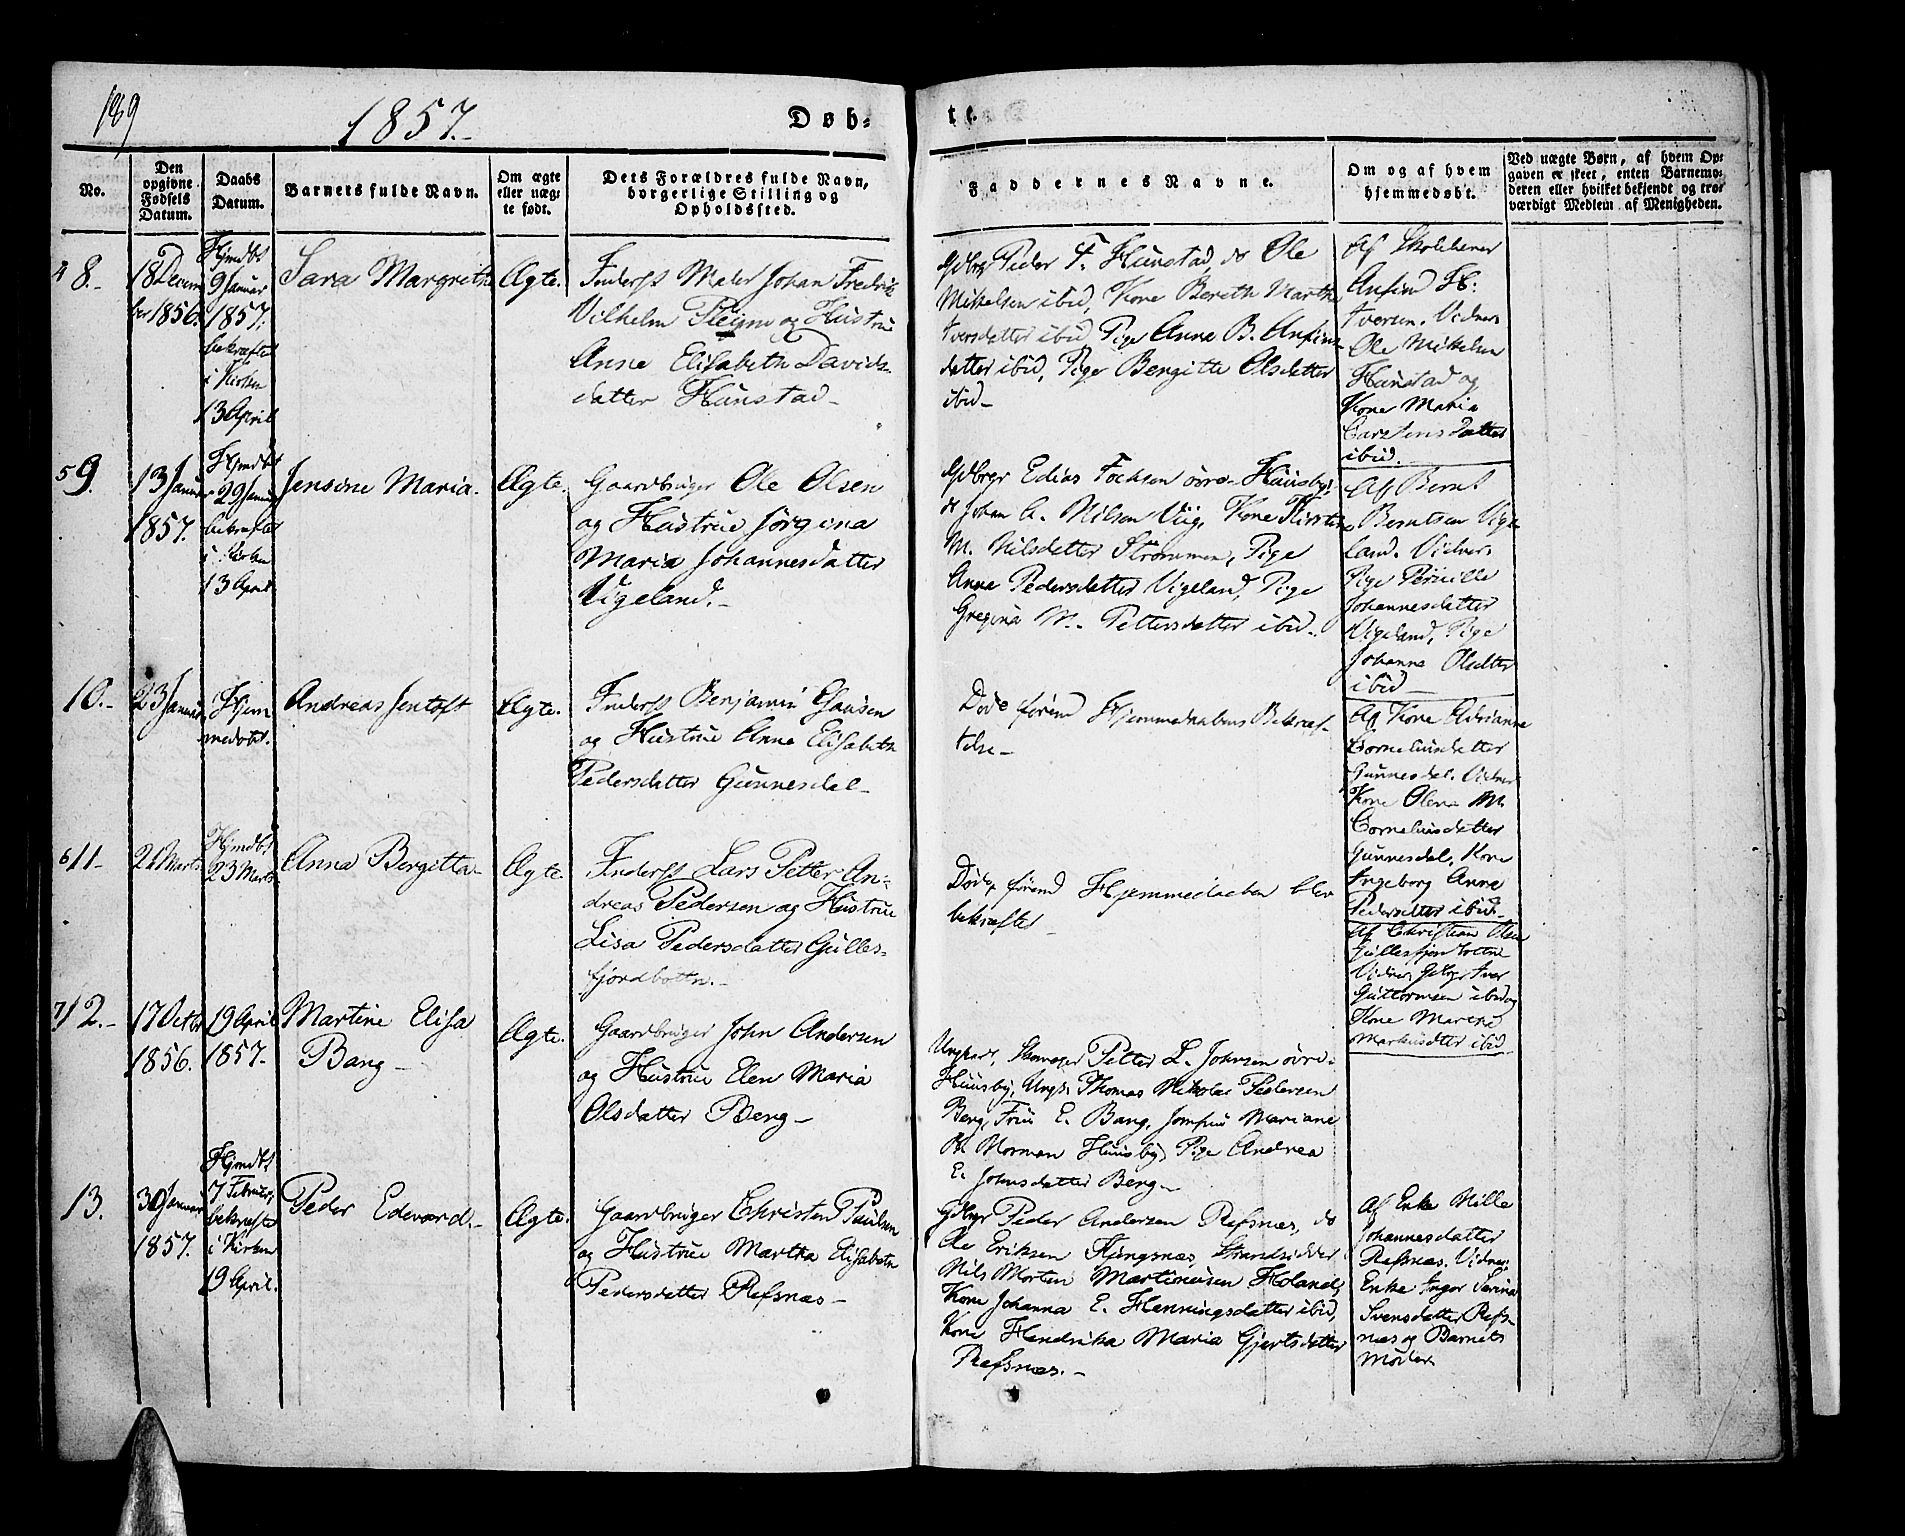 189
1857.
Døb-
te.
No.
Den opgivne Fødsels Datum.
Daabs Datum.
Barnets fulde Navn.
Om ægte eller uægte født.
Dets Forældres fulde Navn, borgerlige Stilling og Opholdssted.
Faddernes Navne.
Om og af hvem hjemmedøbt.
Ved uægte Børn, af hvem Opgaven er skeet, enten Barnemoderen eller hvilket bekjendt og troværdigt Medlem af Menigheden.
4 8.
18 Decem
ber 1856.
Hjmdbt
9 Januar
1857.
bekræftet
i Kirken
13 April
Sara Margreth
Ægte.
Inderst Maler Johan Fredrik
Vilhelm og Hustrue
Anne Elisabeth Davids-
datter Hunstad
Gdbrgr Peder F. Hunstad, do Ole
Mikelsen ibid, Kone Bereth Martha
Iversdatter ibid, Pige Anne B. Anfins-
datter ibid, Pige Bergitte Olsdatter
ibid
Af Skolelærer
Anfin H:
Iversen. Vidner
Ole Mikelsen
Hunstad og
Kone Maria
Carstensdatter
ibid.
5 9.
13 Januar
1857.
Hjmdbt
29 Januar
bekræftet
i Kirken
13 April
Jensine Maria.
Ægte.
Gaardbruger Ole Olsen
og Hustrue Jørgina
Maria Johannesdatter
Vigeland.
Gdbrgr Edias Fochsen øvre Huusby,
do Johan A. Nilsen Viig, Kone Kirsten
M. Nilsdatter Strømmen, Pige
Anne Pedersdatter Vigeland, Pige
Gregina M. Pettersdatter ibid.
Af Bernt
Berntsen Vige
land. Vidner
Pige Pernille
Johannesdatter
Vigeland, Pige
Johanna Olsdtter
ibid
10.
23 Januar
Hjem
medøbt.
Andreas Jentoft
Ægte.
Inderst Benjamin
og Hustrue Anne Elisabeth
Pedersdatter Gunnesdal
Døde førend Hjemmedaabens Bekræf-
telse
Af Kone Adrianne
Corneliusdatter
Gunnesdal. Vidner
Kone Olena M.
Corneliusdatter
Gunnesdal, Kone
Ingeborg Anna
Pedersdatter ibid.
6 11
21 Marts
Hjmdbt
23 Marts
Anna Bergitta
Ægte.
Inderst Lars Petter An-
dreas Pedersen og Hustrue
Lisa Pedersdatter Gulles-
fjordbotn.
Døde førend Hjemmedaaben blev
bekræftet
Af Christian Olsen
Gullesfjordbotne
Vidner, Gdbgr Iver
Guttormsen ibid og
Kone Marthe
Markusdtter ibid
7 12.
17 Octbr
1856.
19 April
1857.
Martine Elisa
Bang
Ægte.
Gaardbruger John Andersen
og Hustrue Elen Maria
Olsdatter Berg
Ungkarl, Petter L. Johnsen øvre
Huusby, Ungk. Thomas Nikolai Pedersen
Berg, Frue E. Bang, Jomfru Mariane
Norman Huusby, Pige Andrea
E. Johnsdatter Berg
13.
30 Januar
1857.
Hjmdbt
7 Februar,
bekræftet
i Kirken
19 April.
Peder Edevard.
Ægte.
Gaardbruger Christen Paulsen
og Hustrue Martha Elisabeth
Pedersdatter Refsnæs
Gdbgr Peder Andersen Refsnæs, do
Ole Eriksen Kungsnæs, Strandsidder
Nils Morten Martinusen Holand,
Kone Johanna E. Henningsdatter ibid,
Kone Hendrika Maria Gjertsdatter
Refsnæs.
Af Enke Nille
Johannesdatter
Refsnæs. Vidner
Enke Inger Serina
Svensdatter Refs-
næs og Barnets
Moder